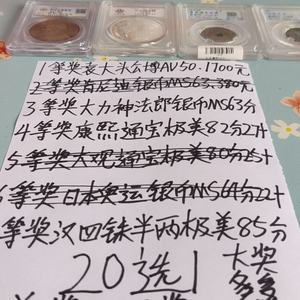 1等奖袁大头公博AU50.1700元
2等奖肯尼迪银币MS63.380元
3等奖大力神法郎银币MS63分
4等奖康熙通宝极美82分2十
5等奖大观通宝极美80分25十
6等奖日本奥运银币MS64分22十
等奖汉四铢半两极美85分
20选1 大奖
多多